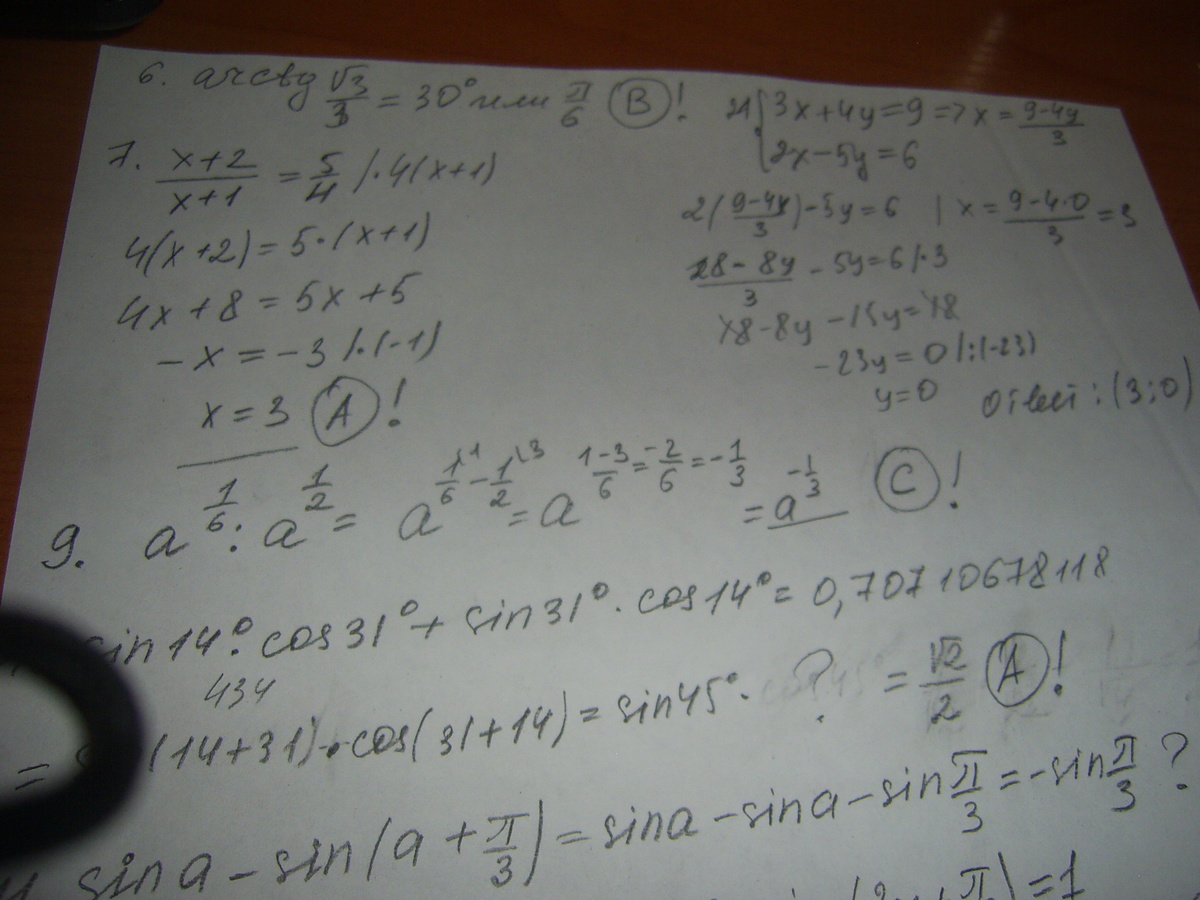 6. arctg √3/3 = 30° или π/6 (B)!
7. (x+2)/(x+1) = 5/4 /·4(x+1)
4(x+2) = 5·(x+1)
4x + 8 = 5x + 5
-x = -3 /·(-1)
x = 3 (A)!
21 { 3x+4y=9 => x = (9-4y)/3
2x-5y=6
2((9-4y)/3)-5y=6 | x = (9-4·0)/3 = 3
(18-8y)/3 - 5y=6 /·3
18-8y-15y=18
-23y=0 /:(-23)
y=0 Ответ: (3;0)
9. a^(1/6) : a^(1/2) = a^(1/6\1 - 1/2\3) = a^((1-3)/6 = -2/6 = -1/3) = a^(-1/3) (C)!
sin14°·cos31°+ sin31°·cos14°= 0,70710678118
434
= (14+31)·cos(31+14) = sin45°· ? = √2/2 (A)!
sina - sin(a + π/3) = sina - sina - sin π/3 = -sin π/3 ?
π )=1